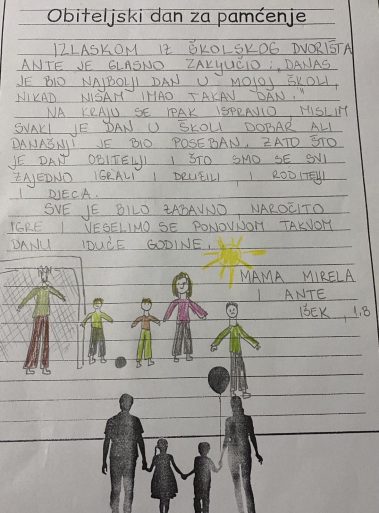 Obiteljski dan za pamćenje
IZLASKOM IZ ŠKOLSKOG DVORIŠTA
ANTE JE GLASNO ZAKLJUČIO: „DANAS
JE BIO NAJBOLJI DAN U MOJOJ ŠKOLI,
NIKAD NISAM IMAO TAKAV DAN."
NA KRAJU SE IPAK ISPRAVIO, MISLIM
SVAKI JE DAN U ŠKOLI DOBAR ALI
DANAŠNJI JE BIO POSEBAN, ZATO ŠTO
JE DAN OBITELJI I ŠTO SMO SE SVI
ZAJEDNO IGRALI I DRUŽILI, I RODITELJI
I DJECA.
SVE JE BILO ZABAVNO, NAROČITO
IGRE I VESELIMO SE PONOVNOM TAKVOM
DANU IDUĆE GODINE.
MAMA MIRELA
I ANTE
IŠEK, 1.B